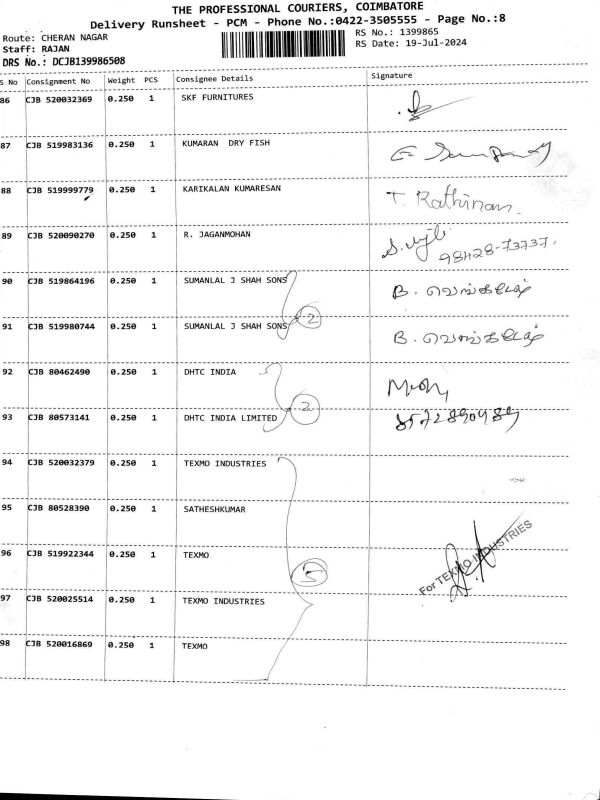 THE PROFESSIONAL COURIERS, COIMBATORE
Delivery Runsheet - PCM - Phone No.:0422-3505555 - Page No.:8
Route: CHERAN NAGAR
RS No.: 1399865
Staff: RAJAN
RS Date: 19-Jul-2024
DRS No.: DCJB139986508
S No Consignment No Weight PCS Consignee Details Signature
86 CJB 520032369 0.250 1 SKF FURNITURES
87 CJB 519983136 0.250 1 KUMARAN DRY FISH
88 CJB 519999779 0.250 1 KARIKALAN KUMARESAN T. Rathinam.
89 CJB 520090270 0.250 1 R. JAGANMOHAN
98428-73737.
90 CJB 519864196 0.250 1 SUMANLAL J SHAH SONS B. வெங்கடேஷ்
2
91 CJB 519980744 0.250 1 SUMANLAL J SHAH SONS B. வெங்கடேஷ்
92 CJB 80462490 0.250 1 DHTC INDIA
2
93 CJB 80573141 0.250 1 DHTC INDIA LIMITED
94 CJB 520032379 0.250 1 TEXMO INDUSTRIES
95 CJB 80528390 0.250 1 SATHESHKUMAR
96 CJB 519922344 0.250 1 TEXMO
5
For TEXMO INDUSTRIES
97 CJB 520025514 0.250 1 TEXMO INDUSTRIES
98 CJB 520016869 0.250 1 TEXMO